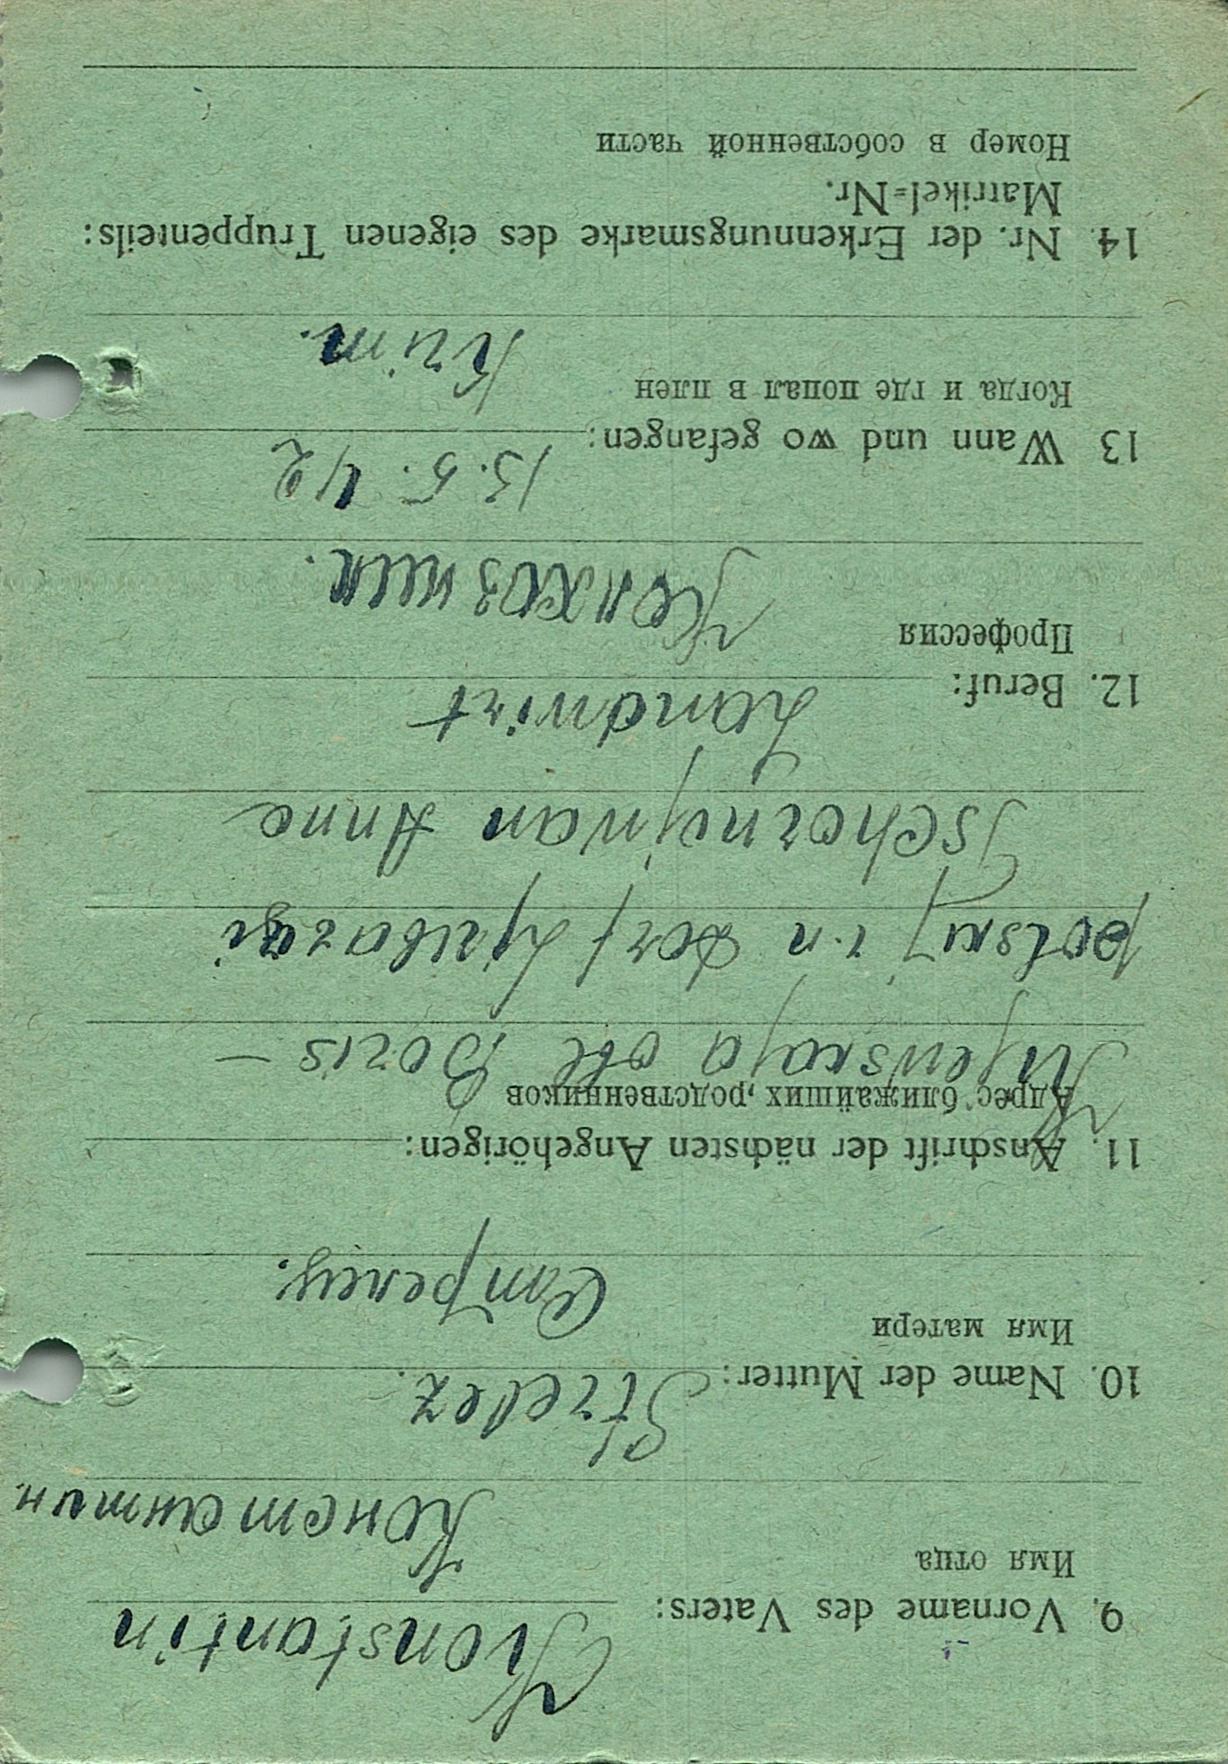 9. Vorname des Vaters: Konstantin
Имя отца
Константин.
10. Name der Mutter: Strelez.
Имя матери
Стрелец.
11. Anschrift der nächsten Angehörigen:
Адрес ближайших родственников
Kijewskaja obl Boris-
polskij r-n Dorf Ljubarzi
Tschornojwan Anna
12. Beruf: Landwirt
Профессия
Колхозник.
13 Wann und wo gefangen: 13.5.42
Когда и где попал в плен
Krim.
14. Nr. der Erkennungsmarke des eigenen Truppenteils:
Matrikel=Nr.
Номер в собственной части